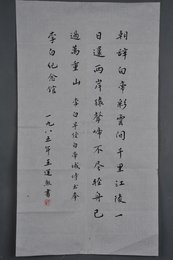 朝辞白帝彩雲间千里江陵一
日還两岸猿聲啼不尽轻舟已
過萬重山 李白早發白帝城诗书奉
李白纪念馆
一九八五年王運熙書